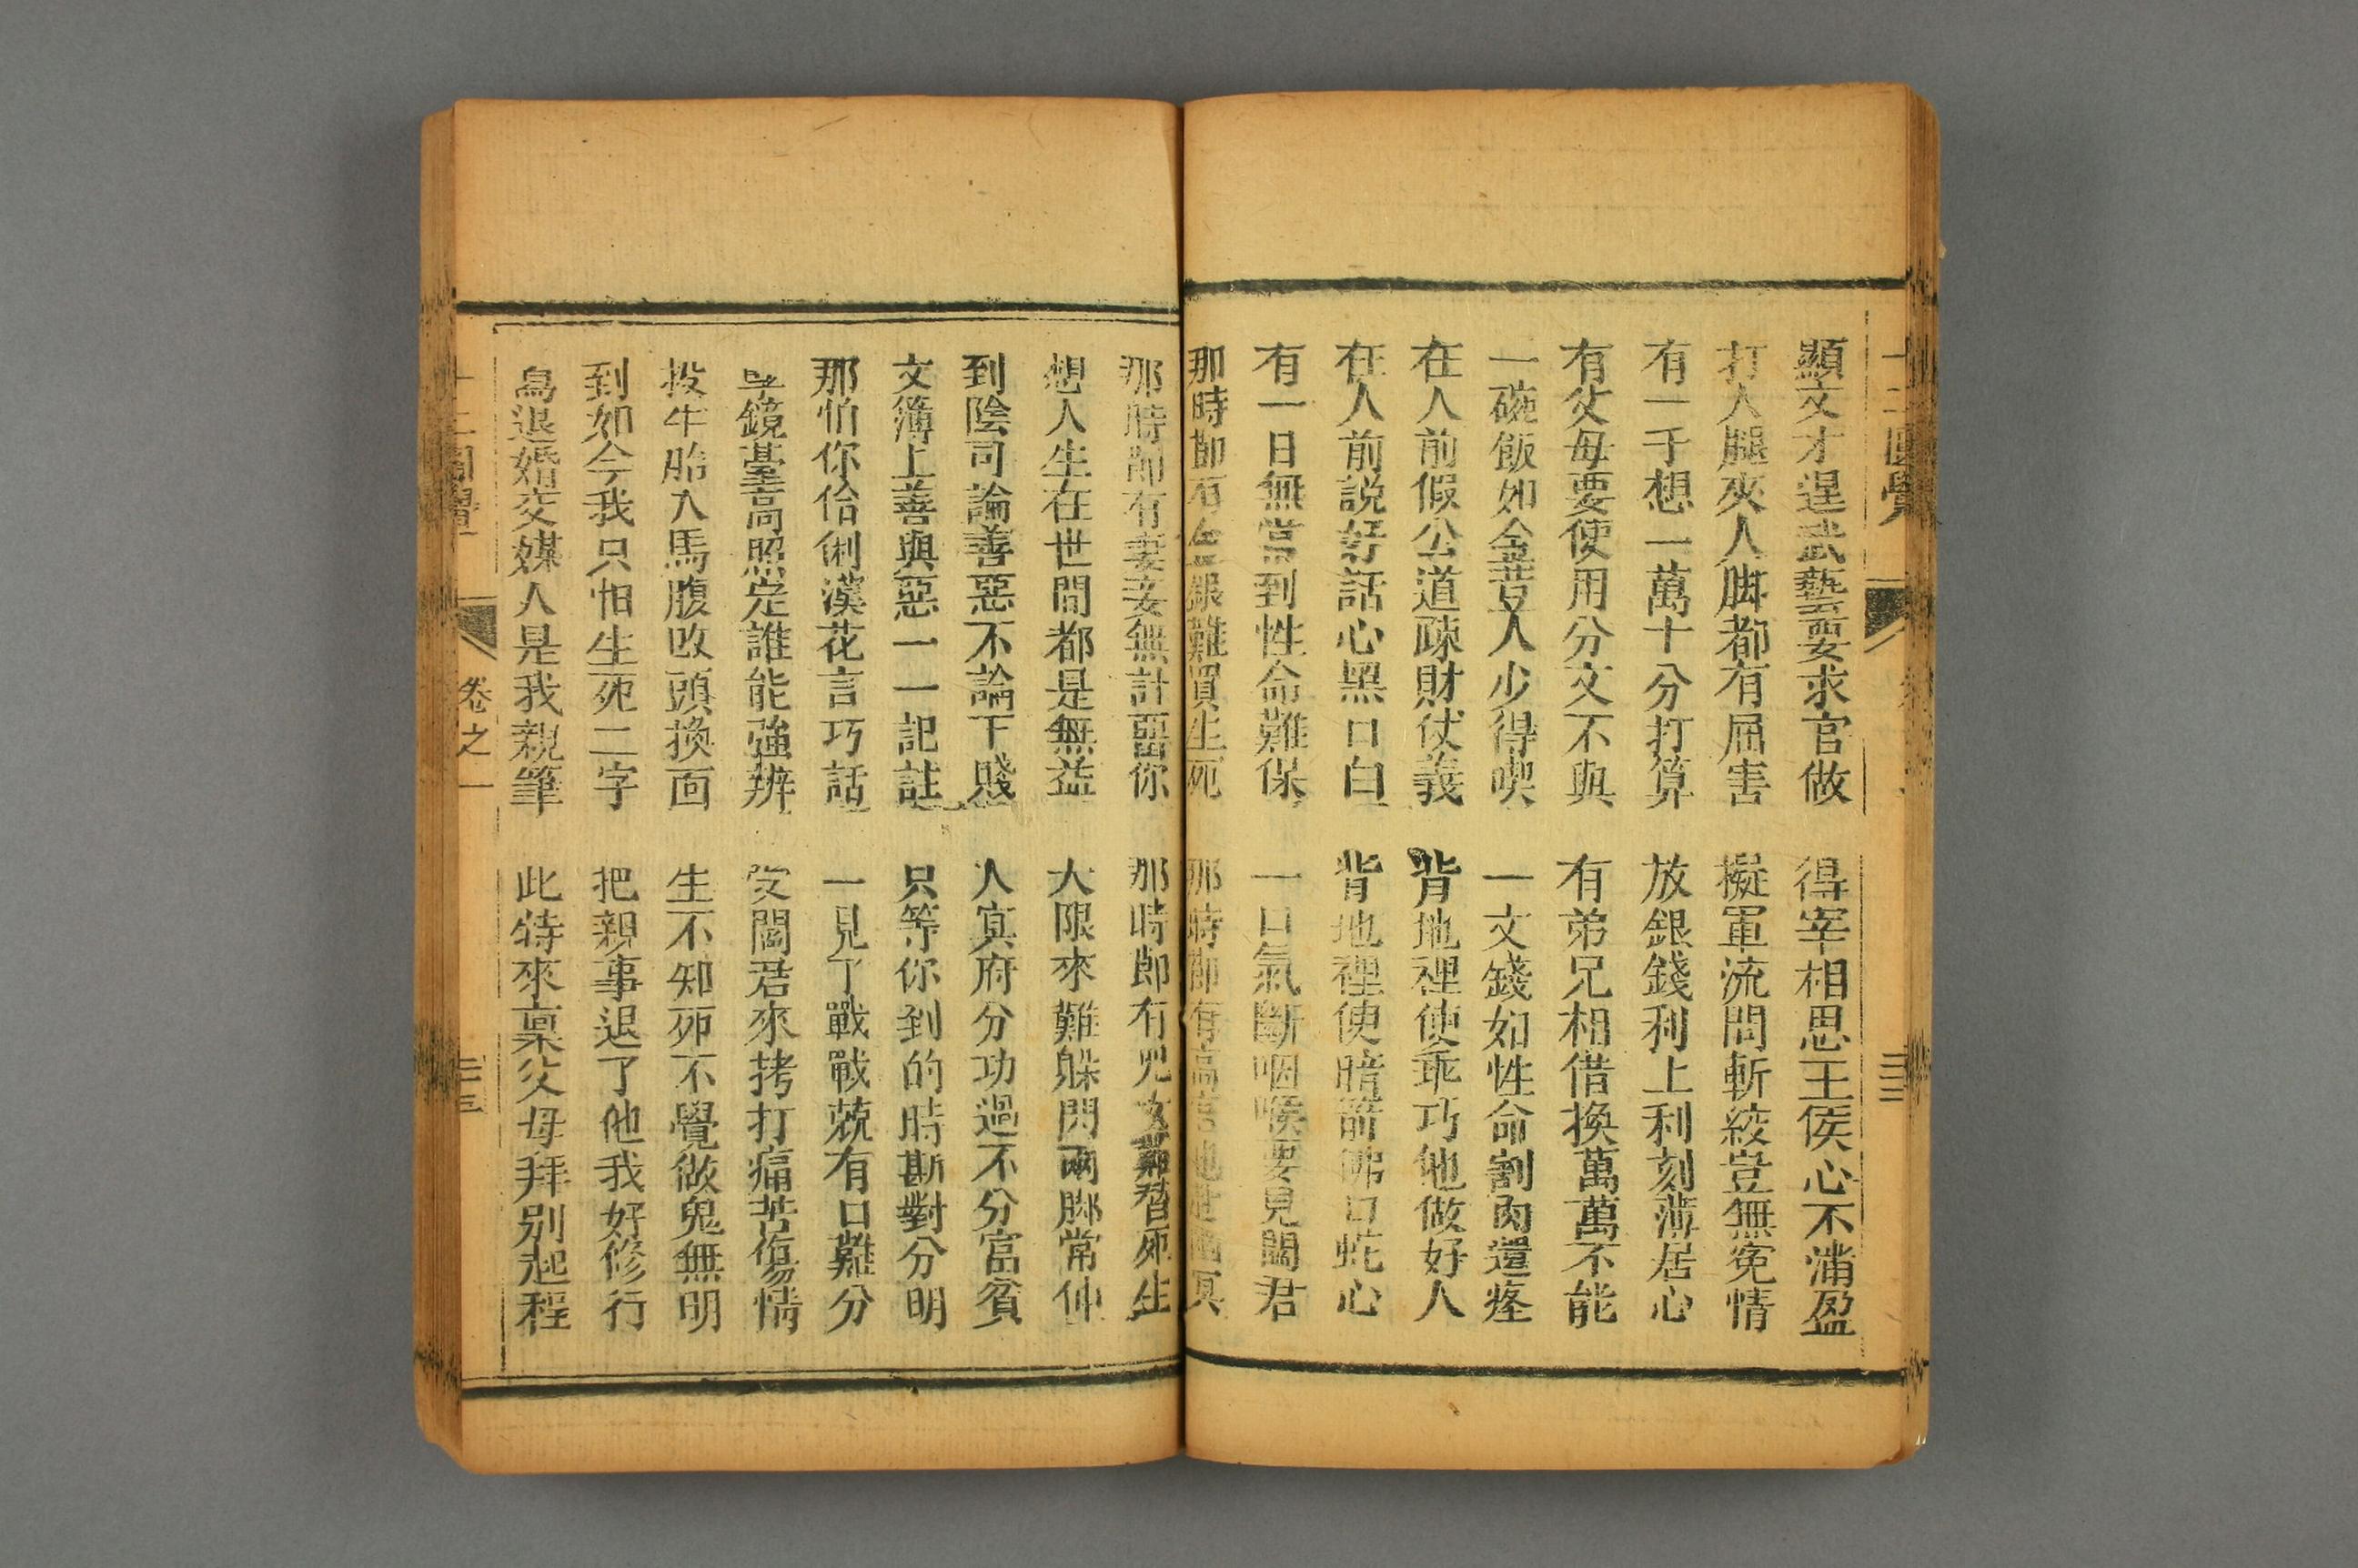 十二圓覺
顯文才逞武藝要求官做 得宰相思王侯心不滿盈
打人腿夾人脚都有屈害 擬軍流問斬絞豈無冤情
有一千想一萬十分打算 放銀錢利上利刻薄居心
有父母要使用分文不與 有弟兄相借換萬萬不能
一碗飯如金薹人少得喫 一文錢如性命割肉還疼
在人前假公道疎財仗義 背地裡使乖巧他做好人
在人前説好話心黑口白 背地裡使暗箭佛口蛇心
有一日無常到性命難保 一口氣斷咽喉要見閻君
那時卽有金銀難買生死 那時卽有高官地
那時卽有妻妾無計留你 那時卽有兒女難替死生
想人生在世間都是無益 大限來難躲閃兩脚常伸
到陰司論善惡不論下賤 人冥府分功過不分富貧
文簿上善與惡一一記註 只等你到的時斯對分明
那怕你伶俐漢花言巧話 一見了戰戰兢有口難分
鏡臺高照定誰能強辨 受閻君來拷打痛苦傷情
投牛胎入馬腹改頭換面 生不知死不覺做鬼無明
到如今我只怕生死二字 把親事退了他我好修行
爲退婚交媒人是我親筆 此特來禀父母拜別起程
十二圓覺 卷之一